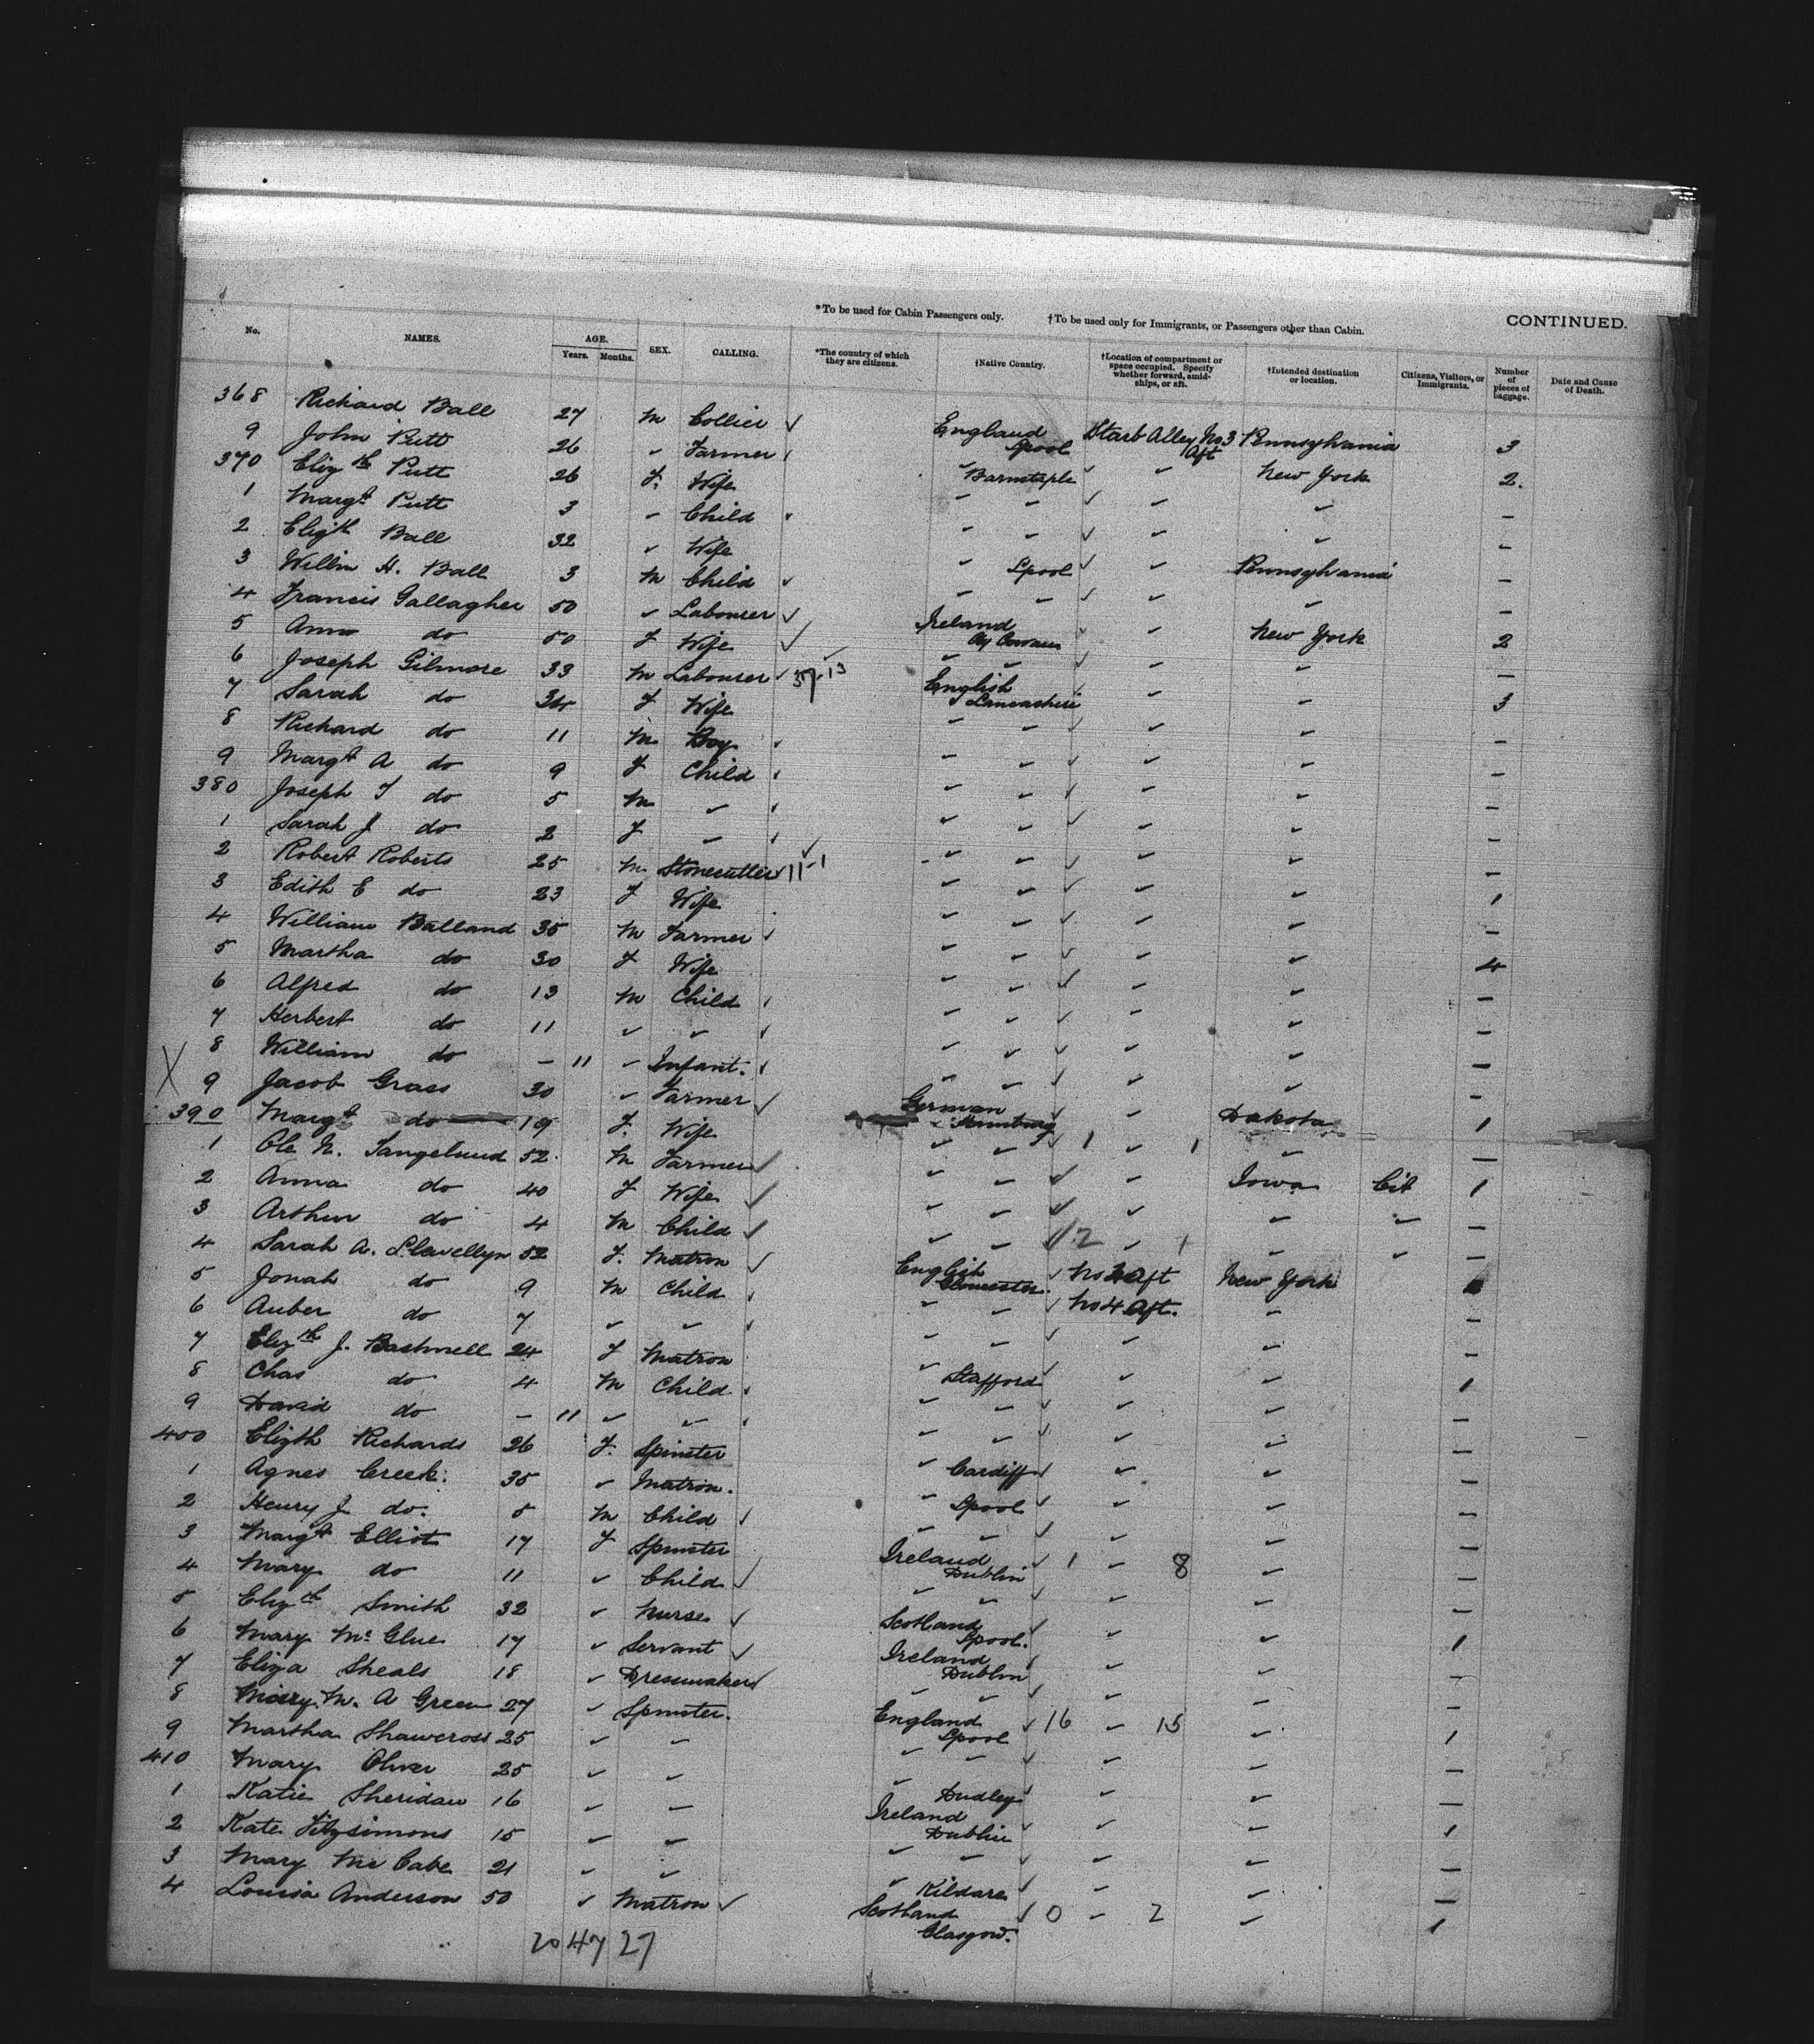 *To be used for Cabin Passengers only. †To be used only for Immigrants, or Passengers other than Cabin. CONTINUED.
No. NAMES. AGE. Years. Months. SEX. CALLING. *The country of which they are citizens. †Native Country. †Location of compartment or space occupied. Specify whether forward, amidships, or aft. †Intended destination or location. Citizens, Visitors, or Immigrants. Number of pieces of baggage. Date and Cause of Death.
368 Richard Ball 27 M Collier ✓ England Lpool Starb Alley No 3 Aft Pennsylvania 3
9 John Putt 26 " Farmer Barnstaple New York 2.
370 Elizth Putt 26 F. Wife " " " " –
1 Margt Putt 3 " Child " " " " –
2 Elizth Ball 32 " Wife " Lpool " Pennsylvania –
3 Willm H. Ball 3 M Child " " " " –
4 Francis Gallagher 50 " Labourer ✓ Ireland " New York 2
5 Ann do 50 F Wife ✓ " " " " –
6 Joseph Gilmore 33 M Labourer 57-13 English Lancashire " " 3
7 Sarah do 34 F Wife " " " " –
8 Richard do 11 M Boy " " " " –
9 Margt A do 9 F Child " " " " –
380 Joseph T do 5 M " " " " " –
1 Sarah J do 2 F " " " " " –
2 Robert Roberts 25 M Stonecutter 11-1 " " " " 1
3 Edith E do 23 F Wife " " " " –
4 William Balland 35 M Farmer " " " " 4
5 Martha do 30 F Wife " " " " –
6 Alfred do 13 M Child " " " " –
7 Herbert do 11 " " " " " " –
8 William do – 11 " Infant. " " " " –
X 9 Jacob Grass 30 " Farmer ✓ German Hamburg " Dakota 1
390 Margt do 19 F. Wife " " 1 " 1 " –
1 Ole N. Tangelund 52 M Farmer ✓ " " " Iowa Cit 1
2 Anna do 40 F Wife ✓ " " " " " –
3 Arthur do 4 M Child ✓ " " 2 " 1 " " –
4 Sarah A. Llewellyn 52 F. Matron ✓ English Gloucester No 4 Aft New York
5 Jonah do 9 M Child " " No 4 Aft. " –
6 Auber do 7 " " " " " " –
7 Elizth J. Bashnell 24 F Matron " Stafford " " 1
8 Chas do 4 M Child " " " " –
9 David do – 11 " " " " " " –
400 Elizth Richards 26 F. Spinster " Cardiff " " –
1 Agnes Creek. 35 " Matron. " Lpool " " –
2 Henry J do. 5 M Child " " " " –
3 Margt Elliot 17 F Spinster Ireland Dublin 1 " 8 " –
4 Mary do 11 " Child ✓ " " " " –
5 Elizth Smith 32 " Nurse ✓ Scotland Lpool. " " 1
6 Mary McGlue 17 " Servant ✓ Ireland Dublin " " –
7 Eliza Sheals 18 " Dressmaker ✓ " " " " –
8 Mary M. A Green 27 " Spinster. England Lpool 16 " 15 " 1
9 Martha Shawcross 25 " " " " " " –
410 Mary Oliver 25 " " " Dudley " " –
1 Katie Sheridan 16 " " Ireland Dublin " " 1
2 Kate Fitzsimons 15 " " " " " " –
3 Mary McCabe 21 " " " Kildare " " –
4 Louisa Anderson 50 " Matron ✓ Scotland Glasgow. 0 " 2 " 1
20 47 27